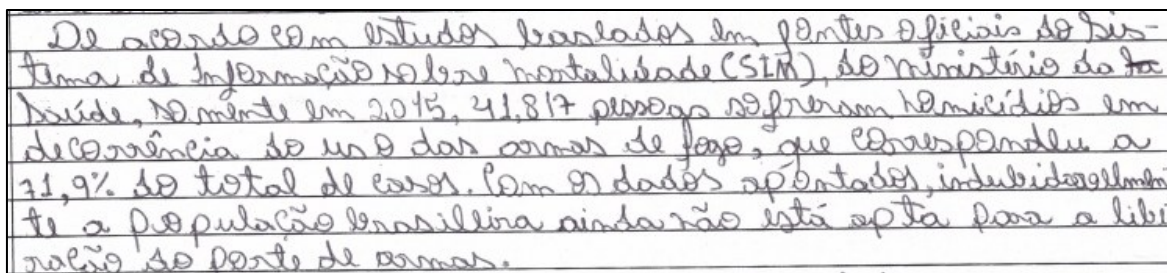 De acordo com estudos baslados em fontes oficiais do Sis-
tema de Informação sobre Mortalidade (SIM), do ministério da
Saúde, somente em 2015, 41,817 pessoas sofreram homicídios em
decorrência do uso das armas de fogo, que correspondeu a
71,9% do total de casos. Com os dados apontados,
te a população brasilleira ainda não está apta para a libe
ração do porte de armas.